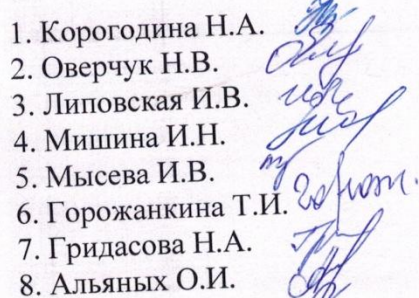 1. Корогодина Н.А.
2. Оверчук Н.В.
3. Липовская И.В.
4. Мишина И.Н.
5. Мысева И.В.
6. Горожанкина Т.И.
7. Гридасова Н.А.
8. Альяных О.И.